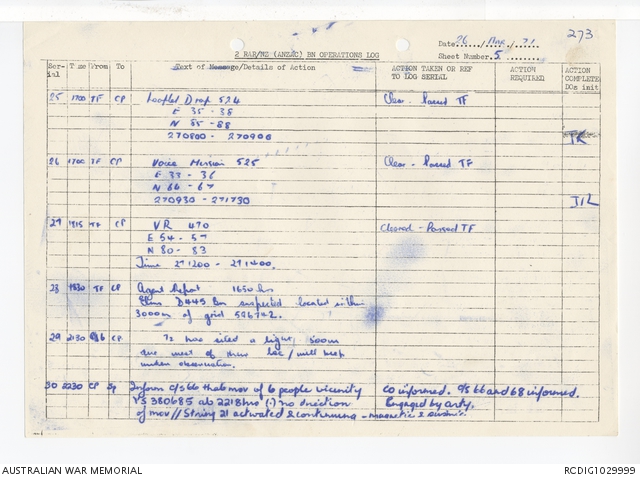 273
2 RAR/NZ (ANZAC) BN OPERATIONS LOG
Date 26 / Mar / 71
Sheet Number 5
Serial Time From To Text of Message/Details of Action ACTION TAKEN OR REF TO LOG SERIAL ACTION REQUIRED ACTION COMPLETE DOs init
25 1700 TF CP Leaflet Drop 524 Clear - Passed TF
E 35 - 38
N 85 - 88
270800 - 270900
26 1700 TF CP Voice Mission 525 Clear - Passed TF
E 33 - 36
N 66 - 67
270930 - 271730
27 1915 TF CP VR 470 Cleared - Passed TF
E 54 - 57
N 80 - 83
Time 271200 - 271400.
28 1930 TF CP Agent Report 1650 hrs
Elms D445 Bn suspected located within
3000m of grid
29 2130 CP has sited a light, 500m
due west of their loc / will keep
under observation.
30 2230 CP Inform c/s 66 that mov of 6 people vicinity CO informed. C/S 66 and 68 informed.
YS 380685 at 2218hrs (.) no direction Engaged by arty.
of mov // String 21 activated & continuing - magnetic &
AUSTRALIAN WAR MEMORIAL
RCDIG1029999